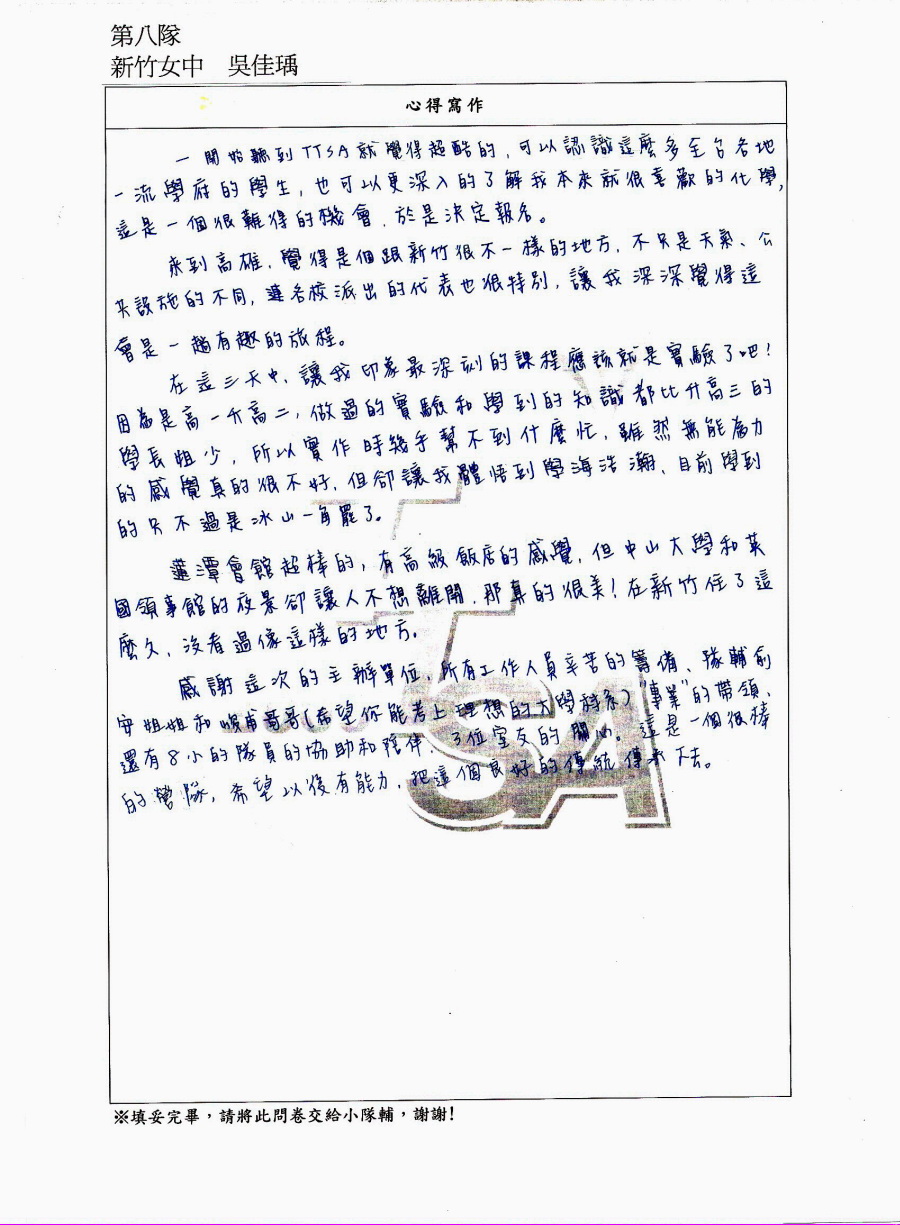 第八隊
新竹女中 吳佳瑀
心得寫作
一開始聽到TTSA就覺得超酷的,可以認識這麼多全台各地
一流學府的學生,也可以更深入的了解我本來就很喜歡的化學,
這是一個很難得的機會,於是決定報名。
來到高雄,覺得是個跟新竹很不一樣的地方,不只是天氣、公
共設施的不同,連各校派出的代表也很特別,讓我深深覺得這
會是一趟有趣的旅程。
在這三天中,讓我印象最深刻的課程應該就是實驗了吧!
因為是高一升高二,做過的實驗和學到的知識都比升高三的
學長姐少,所以實作時幾乎幫不到什麼忙,雖然無能為力
的感覺真的很不好,但卻讓我體悟到學海浩瀚、目前學到
的只不過是冰山一角罷了。
蓮潭會館超棒的,有高級飯店的感覺,但中山大學和英
國領事館的夜景卻讓人不想離開,那真的很美!在新竹住了這
麼久,沒看過像這樣的地方。
感謝這次的主辦單位,所有工作人員辛苦的籌備、隊輔俞
安姐姐和峻甫哥哥(希望你能考上理想的大學科系)"專業"的帶領、
還有8小的隊員的協助和陪伴、3位室友的關心。這是一個很棒
的營隊,希望以後有能力,把這個良好的傳統傳承下去。
TTSA
※填妥完畢,請將此問卷交給小隊輔,謝謝!